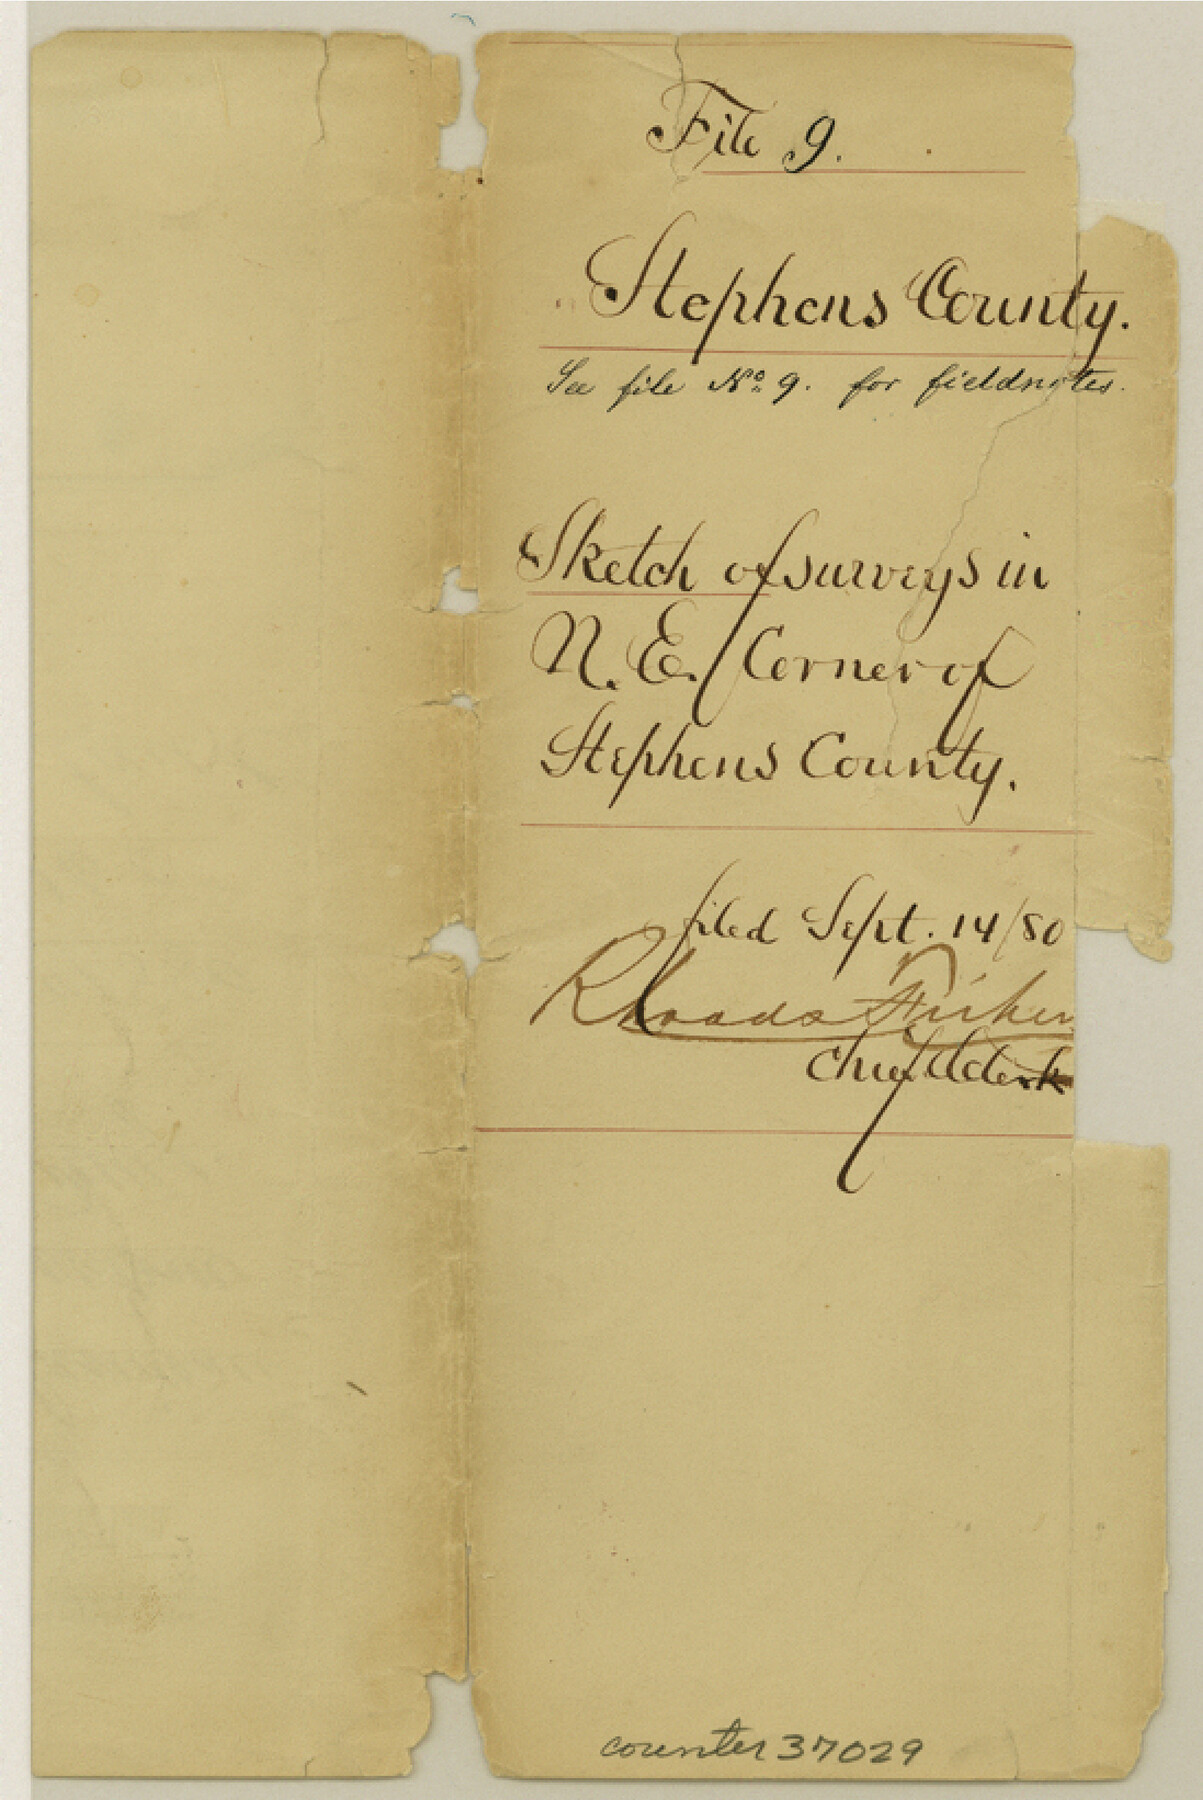 File 9.
Stephens County.
See file No 9. for fieldnotes.
Sketch of surveys in
N. E. Corner of
Stephens County.
filed Sept. 14/80
Rhoads Fisher
Chief Clerk
counter 37029